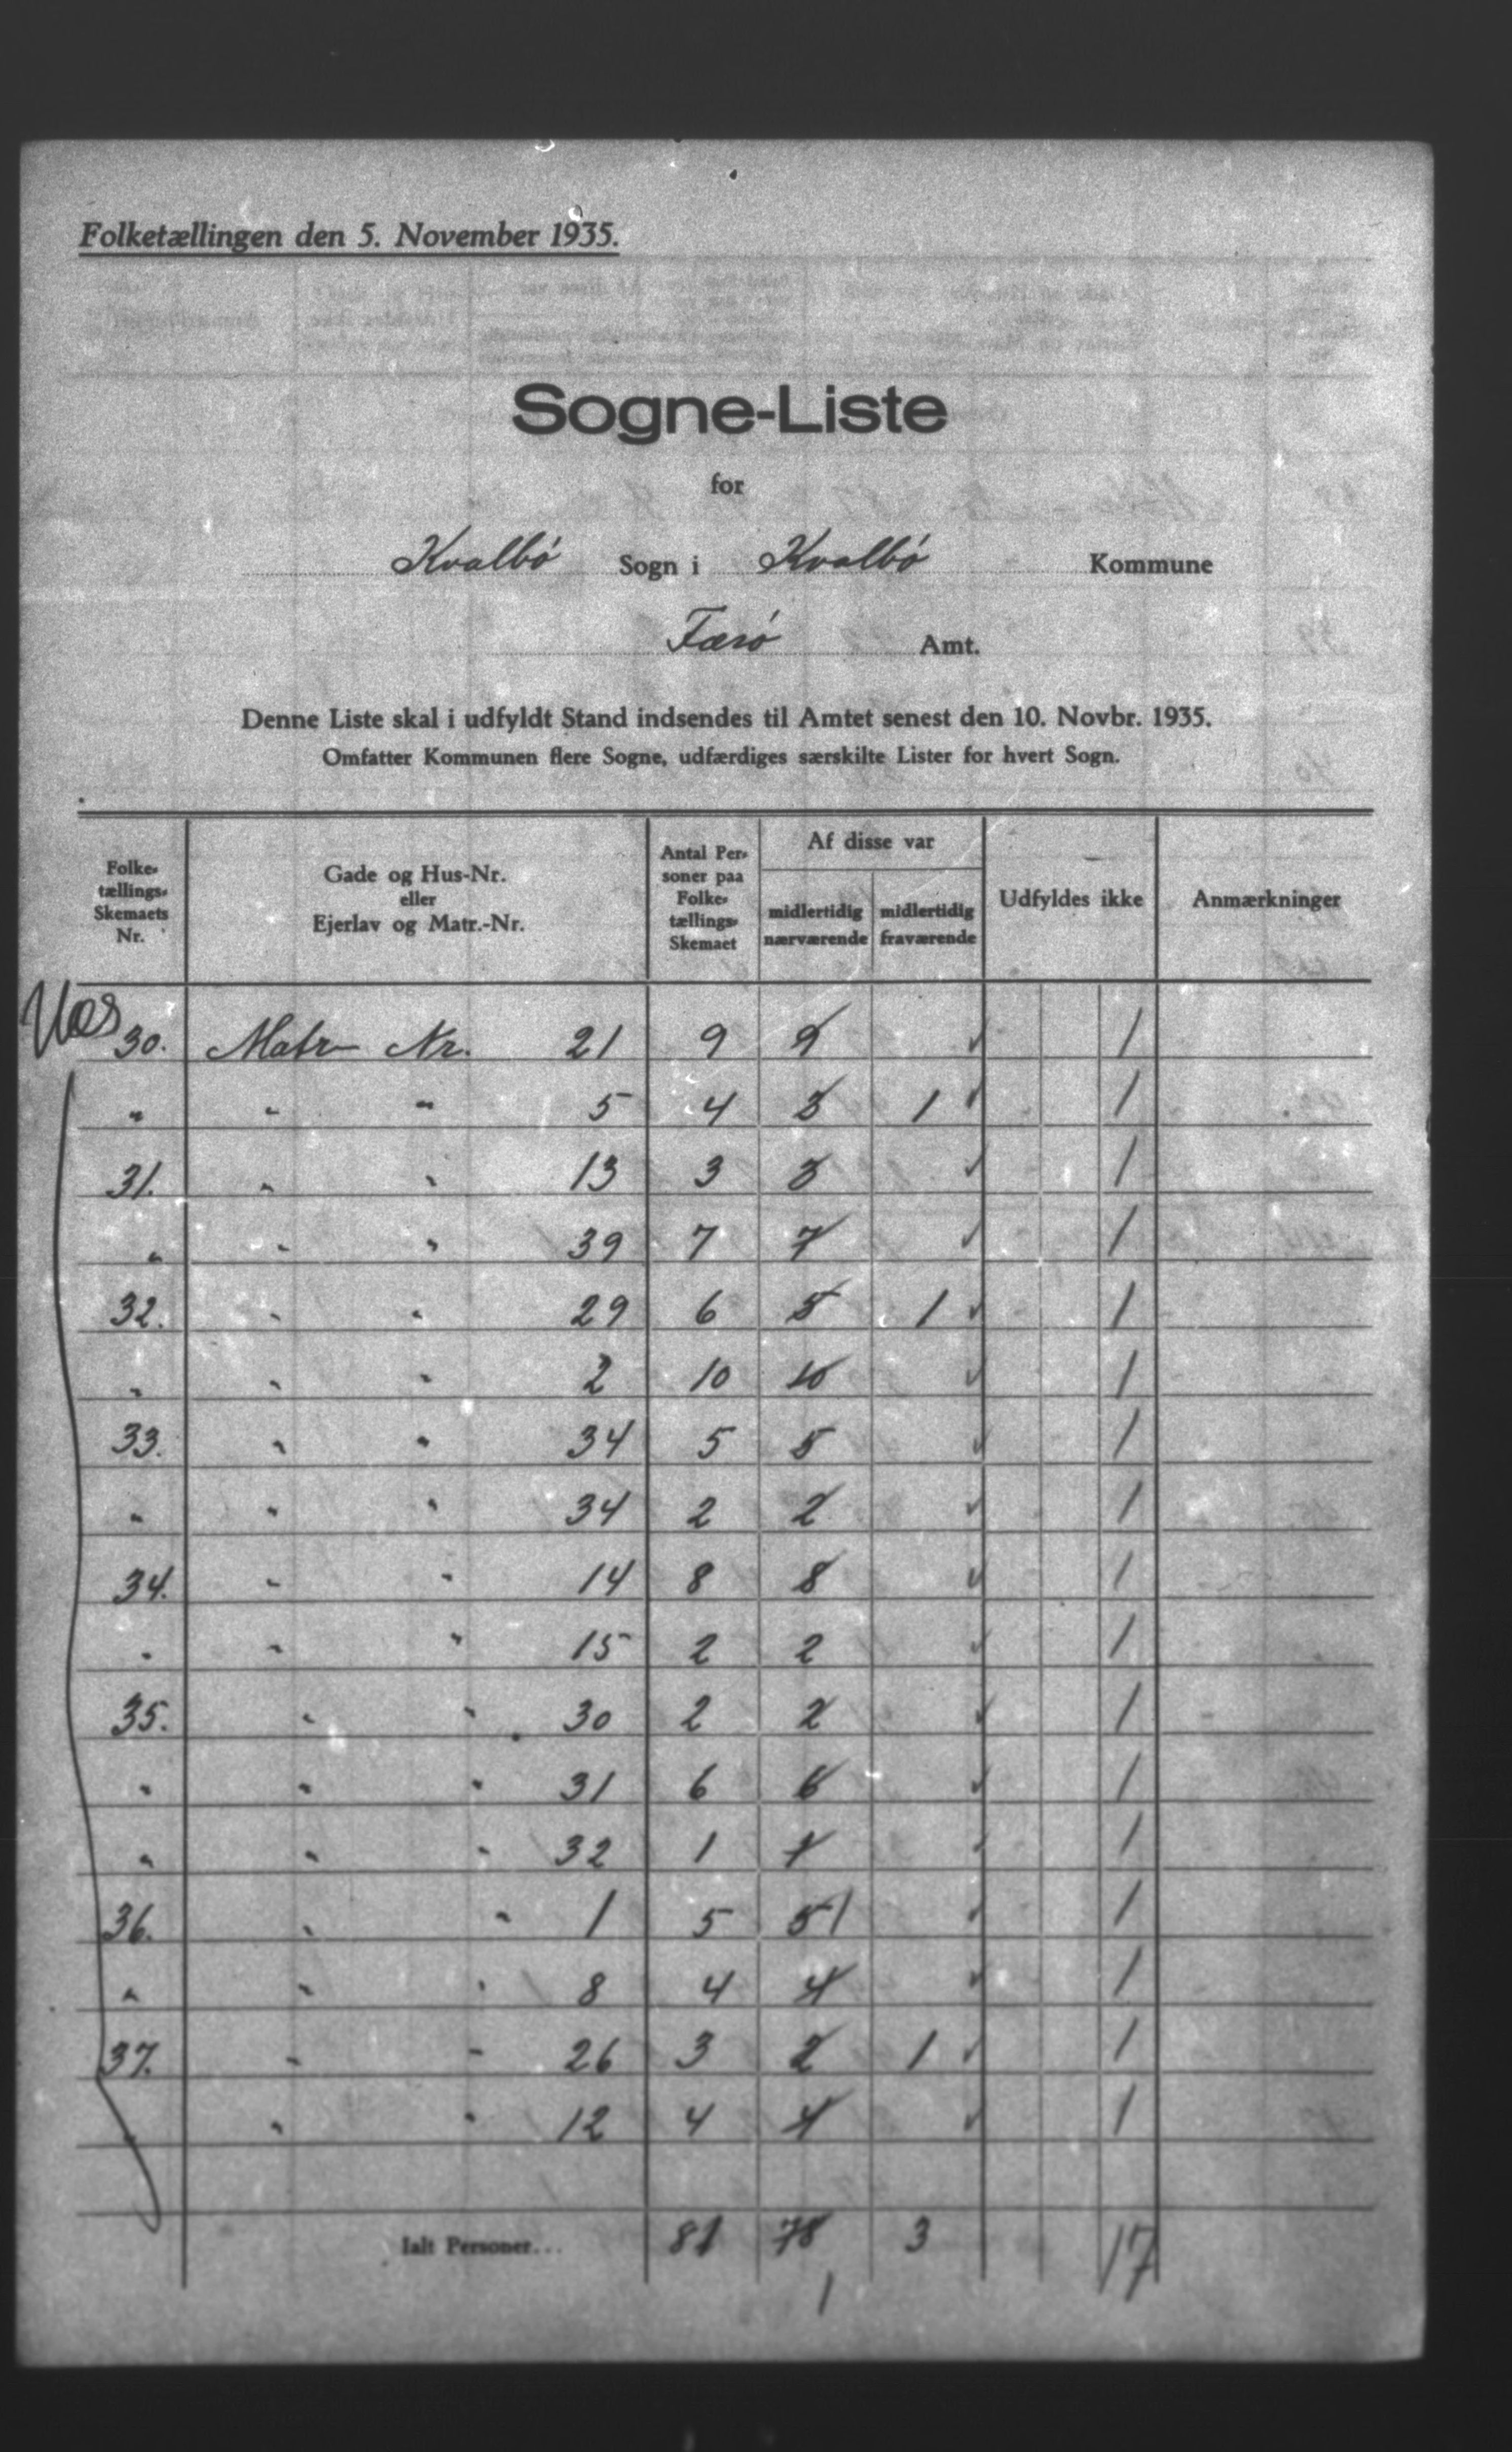 Folketællingen den 5. November 1935.
Sogne-Liste
for
Kvalbø Sogn i Kvalbø Kommune
Færø Amt.
Denne Liste skal i udfyldt Stand indsendes til Amtet senest den 10. Novbr. 1935.
Omfatter Kommunen flere Sogne, udfærdiges særskilte Lister for hvert Sogn.
Folketællings-Skemaets Nr. Gade og Hus-Nr. eller Ejerlav og Matr.-Nr. Antal Personer paa Folketællings-Skemaet Af disse var midlertidig nærværende midlertidig fraværende Udfyldes ikke Anmærkninger
30. Matr Nr. 21 9 9 ✓ 1
" " " 5 4 3 1 ✓ 1
31. " " 13 3 3 ✓ 1
" " " 39 7 7 ✓ 1
32. " " 29 6 5 1 ✓ 1
" " " 2 10 10 ✓ 1
33. " " 34 5 5 ✓ 1
" " " 34 2 2 ✓ 1
34. " " 14 8 8 ✓ 1
" " " 15 2 2 ✓ 1
35. " " 30 2 2 ✓ 1
" " " 31 6 6 ✓ 1
" " " 32 1 1 ✓ 1
36. " " 1 5 5 1 ✓ 1
" " " 8 4 4 ✓ 1
37. " " 26 3 2 1 ✓ 1
" " " 12 4 4 ✓ 1
Ialt Personer... 81 78 3 17
1